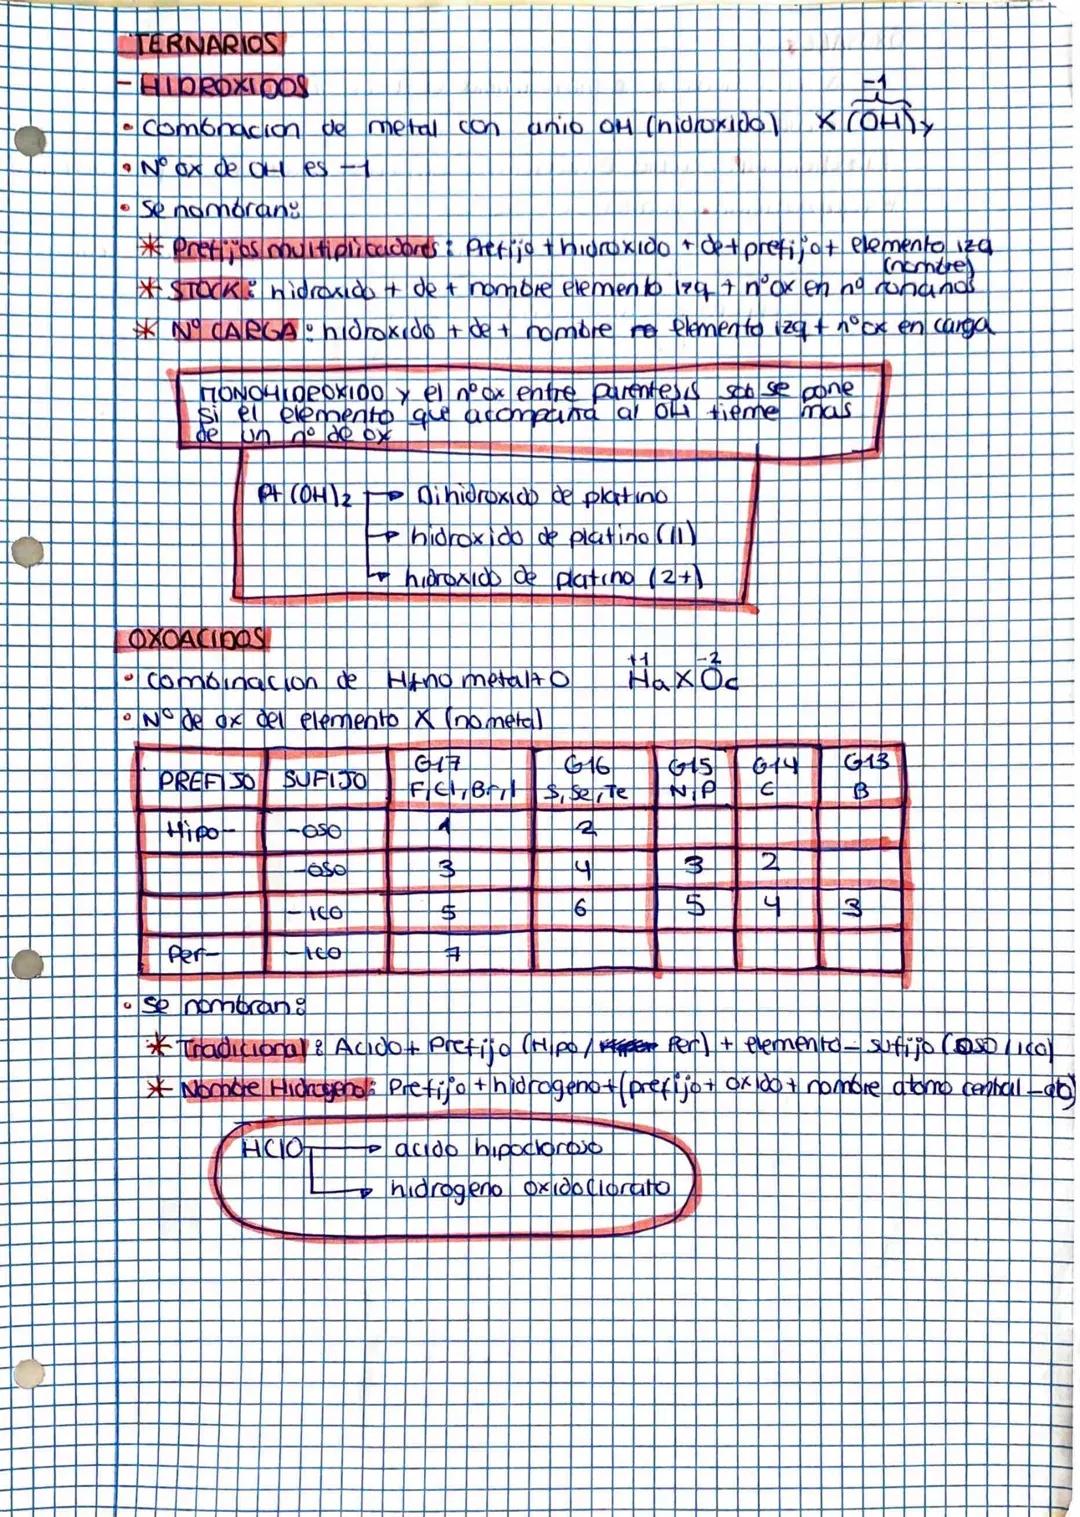 TERNARIOS
- HIDROXIDOS
• combnacion de metal con anio OH (hidroxido) X(OH)y
-1
• Nº ox de OH es -1
• se nombran:
* Prefijos multiplicadores: Prefijo + hidroxido + de + prefijo + elemento izq
(nombre)
* STOCK: hidroxido + de + nombre elemento izq + nºox en nº romanos
* Nº CARGA: hidroxido + de + nombre elemento izq + nºox en carga
MONOHIDROXIDO y el nºox entre parentesis solo se pone
si el elemento que acompaña al OH tieme mas
de un nº de ox
Pt(OH)2 → Dihidroxido de platino
→ hidroxido de platino (II)
→ hidroxido de platino (2+)
OXOACIDOS
• combinacion de H+no metal+O HaXOc
+1 -2
• Nº de ox del elemento X (no metal)
PREFIJO SUFIJO G17 F,Cl,Br,I G16 S,Se,Te G15 N,P G14 C G13 B
Hipo- -oso 1 2
-oso 3 4 3 2
-ico 5 6 5 4 3
Per- -ico 7
• se nombran:
* Tradicional: Acido + Prefijo (Hipo/ Per) + elemento - sufijo (oso/ico)
* Nombre Hidrogeno: Prefijo + hidrogeno + (prefijo + oxido + nombre atomo central -ato)
HClO → acido hipocloroso
→ hidrogeno oxidoclorato